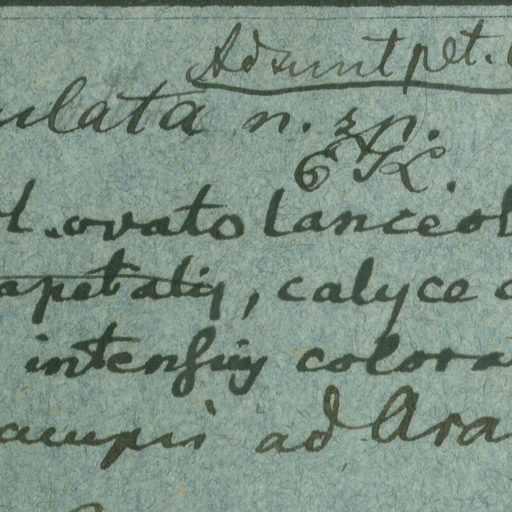 Adsunt pet.
ulata n. sp.
6 K.
fl. ovato lanceol
apetalis, calyce
intensius colora
ad Ara